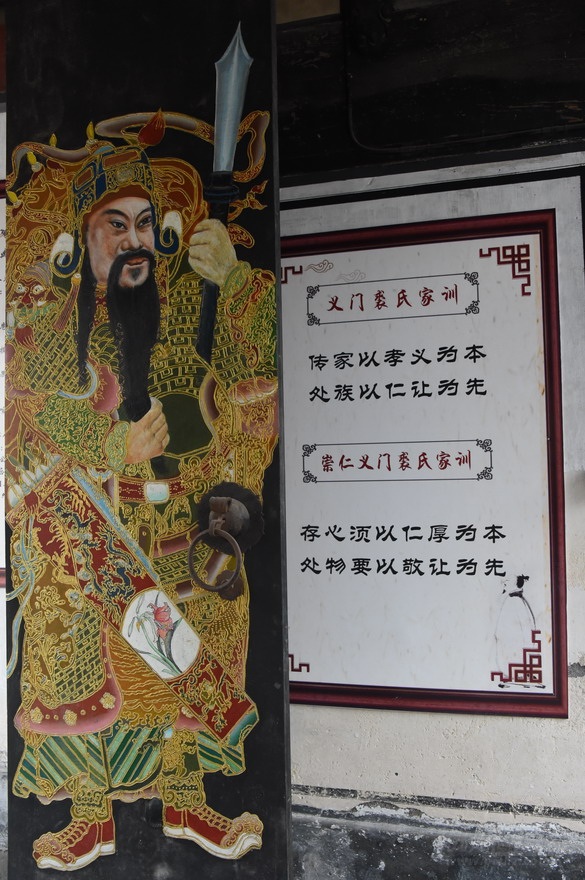 义门裘氏家训
传家以孝义为本
处族以仁让为先
崇仁义门裘氏家训
存心须以仁厚为本
处物要以敬让为先